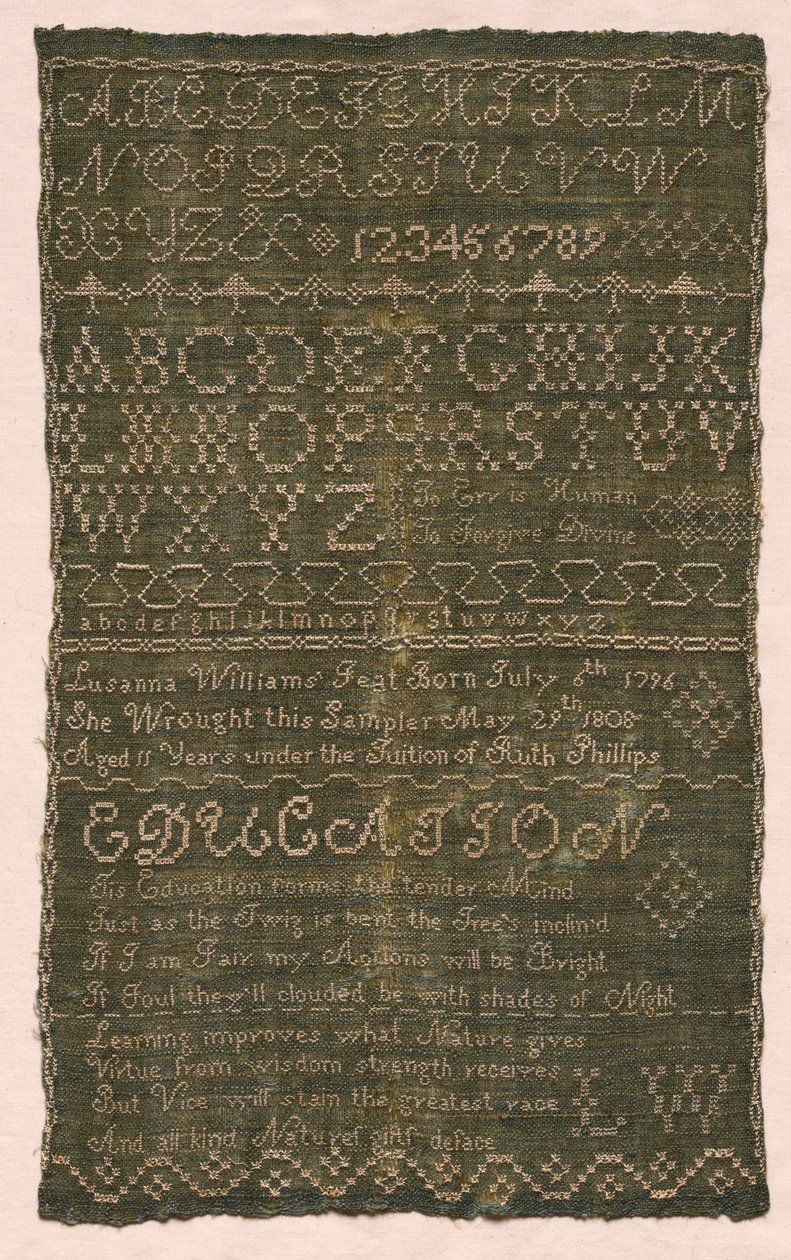 A B C D E F G H I K L M
N O P Q R S T U V W
X Y Z & 1 2 3 4 5 6 7 8 9
A B C D E F G H I J K
L M N O P Q R S T U V
W X Y Z To Err is Human
To Forgive Divine
a b c d e f g h i j k l m n o p q r s t u v w x y z
Lusanna Williams' Feat Born July 6th 1796
She Wrought this Sampler May 29th 1808
Aged 11 Years under the Tuition of Ruth Phillips
EDUCATION
Tis Education forms the tender Mind
Just as the Twig is bent the Tree's inclin'd
If I am Fair my Actions will be Bright
If Foul they'll clouded be with shades of Night
Learning improves what Nature gives
Virtue from wisdom strength receives
But Vice will stain the greatest race L W
And all kind Natures gifts deface